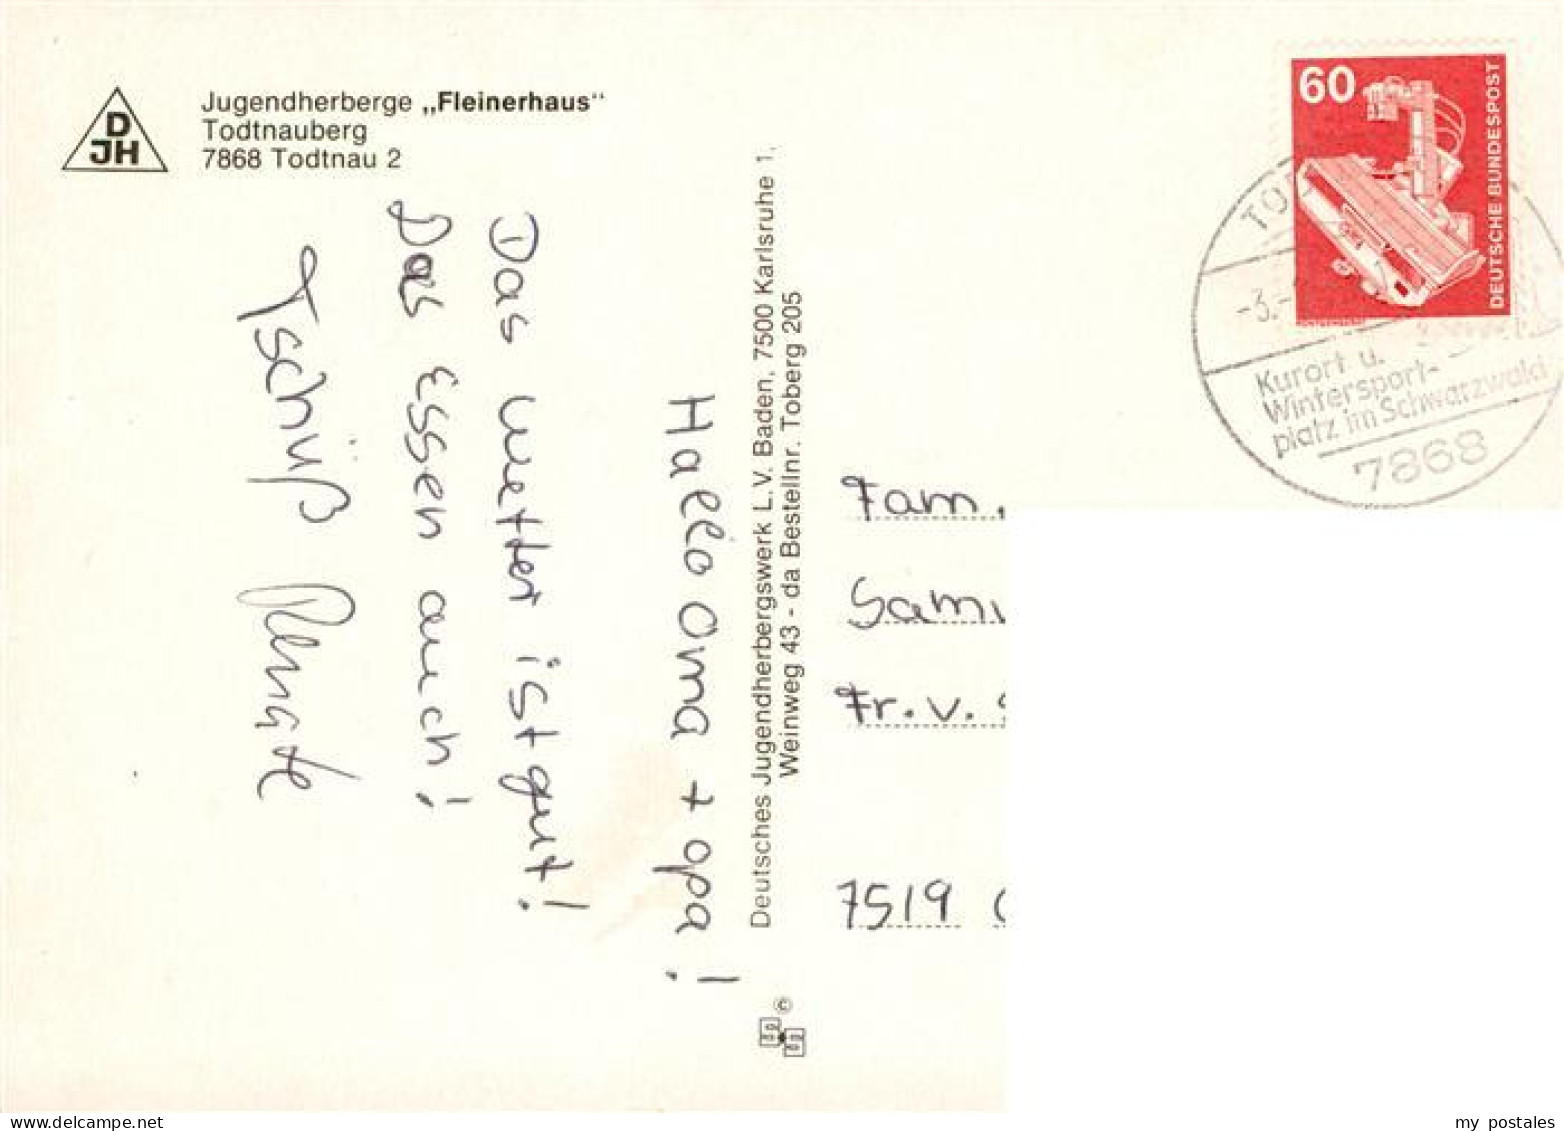 D
JH
Jugendherberge „Fleinerhaus“
Todtnauberg
7868 Todtnau 2
Hallo Oma + Opa!
Das Wetter ist gut!
Das Essen auch!
Tschüß Renate
Deutsches Jugendherbergswerk L.V. Baden, 7500 Karlsruhe 1,
Weinweg 43 - da Bestellnr. Toberg 205
©
60
DEUTSCHE BUNDESPOST
-3.-
Kurort u.
Wintersport-
platz im Schwarzwald
7868
Fam.
Fr. v.
7519
my postales